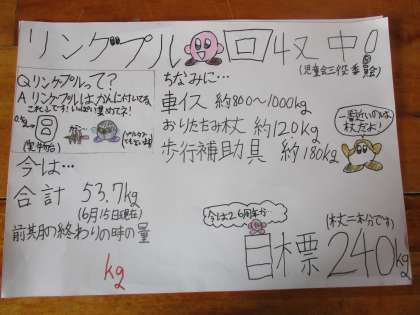 リングプル回収中!
(児童会三役委員会)
Qリングプルって?
A リングプルはカンに付いてる、
これらです!いっぱい集めてネ!
ちなみに…
車イス 約800〜1000kg
おりたたみ杖 約120kg
歩行補助具 約180kg
一番近いのは、
杖だよ!
今は…
合計 53.7kg
(6月15日現在)
前期の終わりの時の量
kg
今は26周年分
(杖二本分です)
目標 240kg